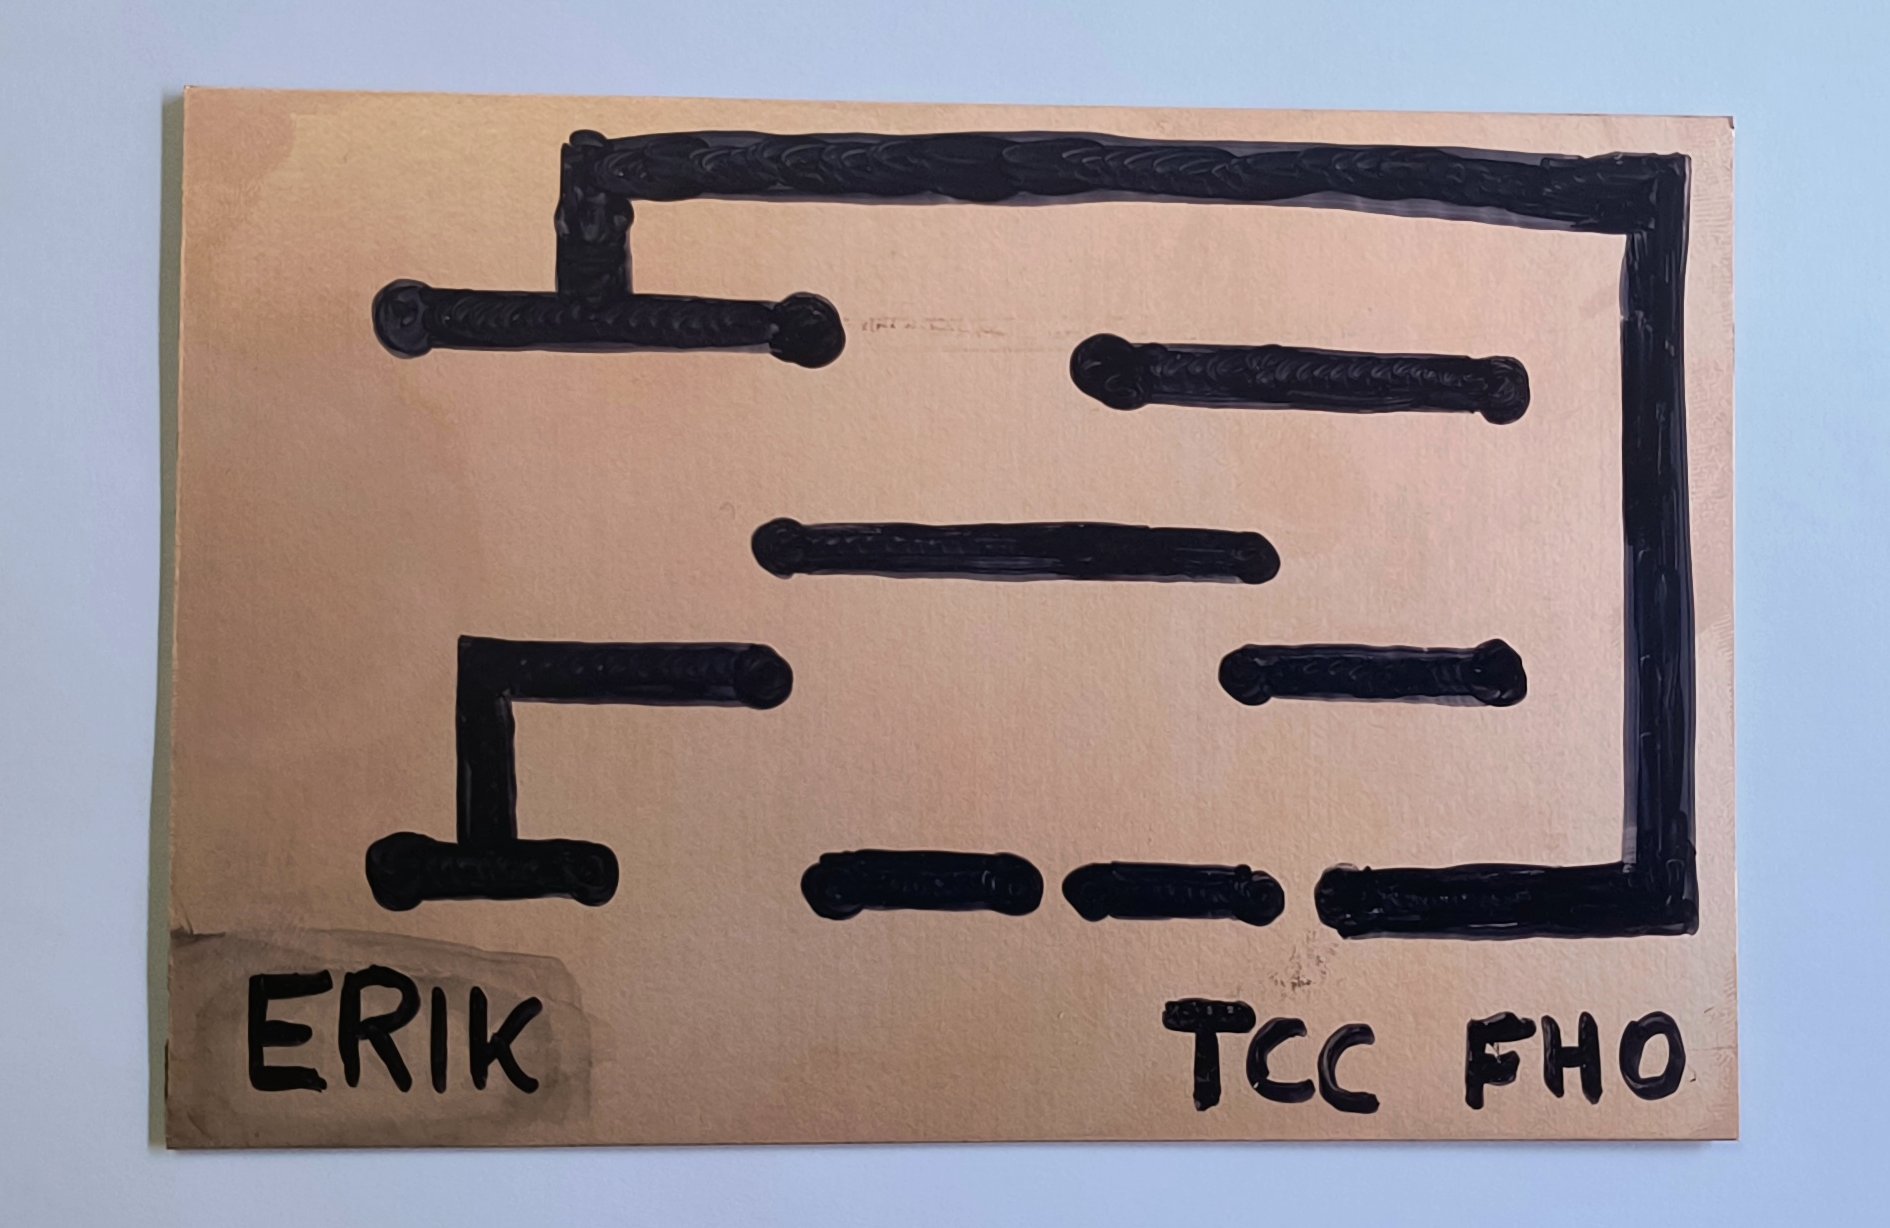 ERIK TCC FHO